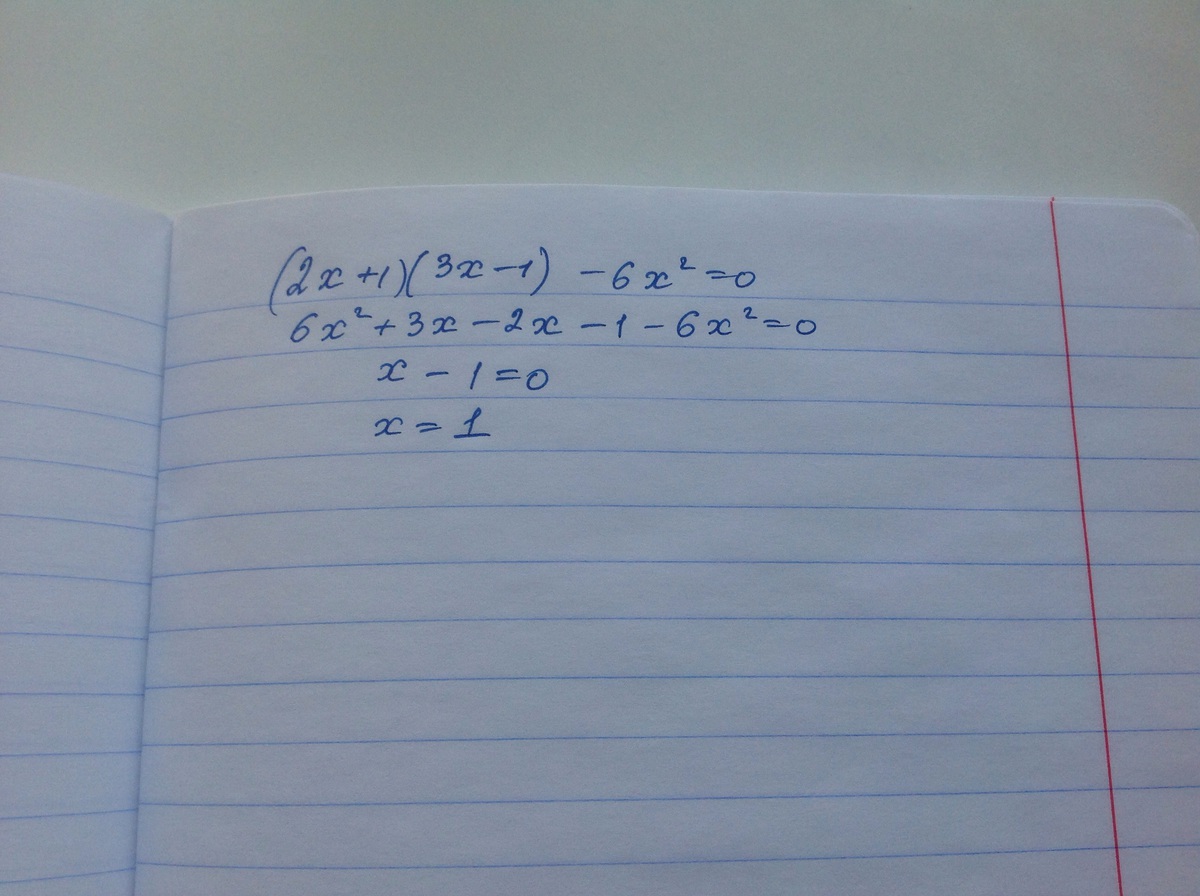 (2x+1)(3x-1) -6x²=0
6x²+3x-2x-1-6x²=0
x-1=0
x=1